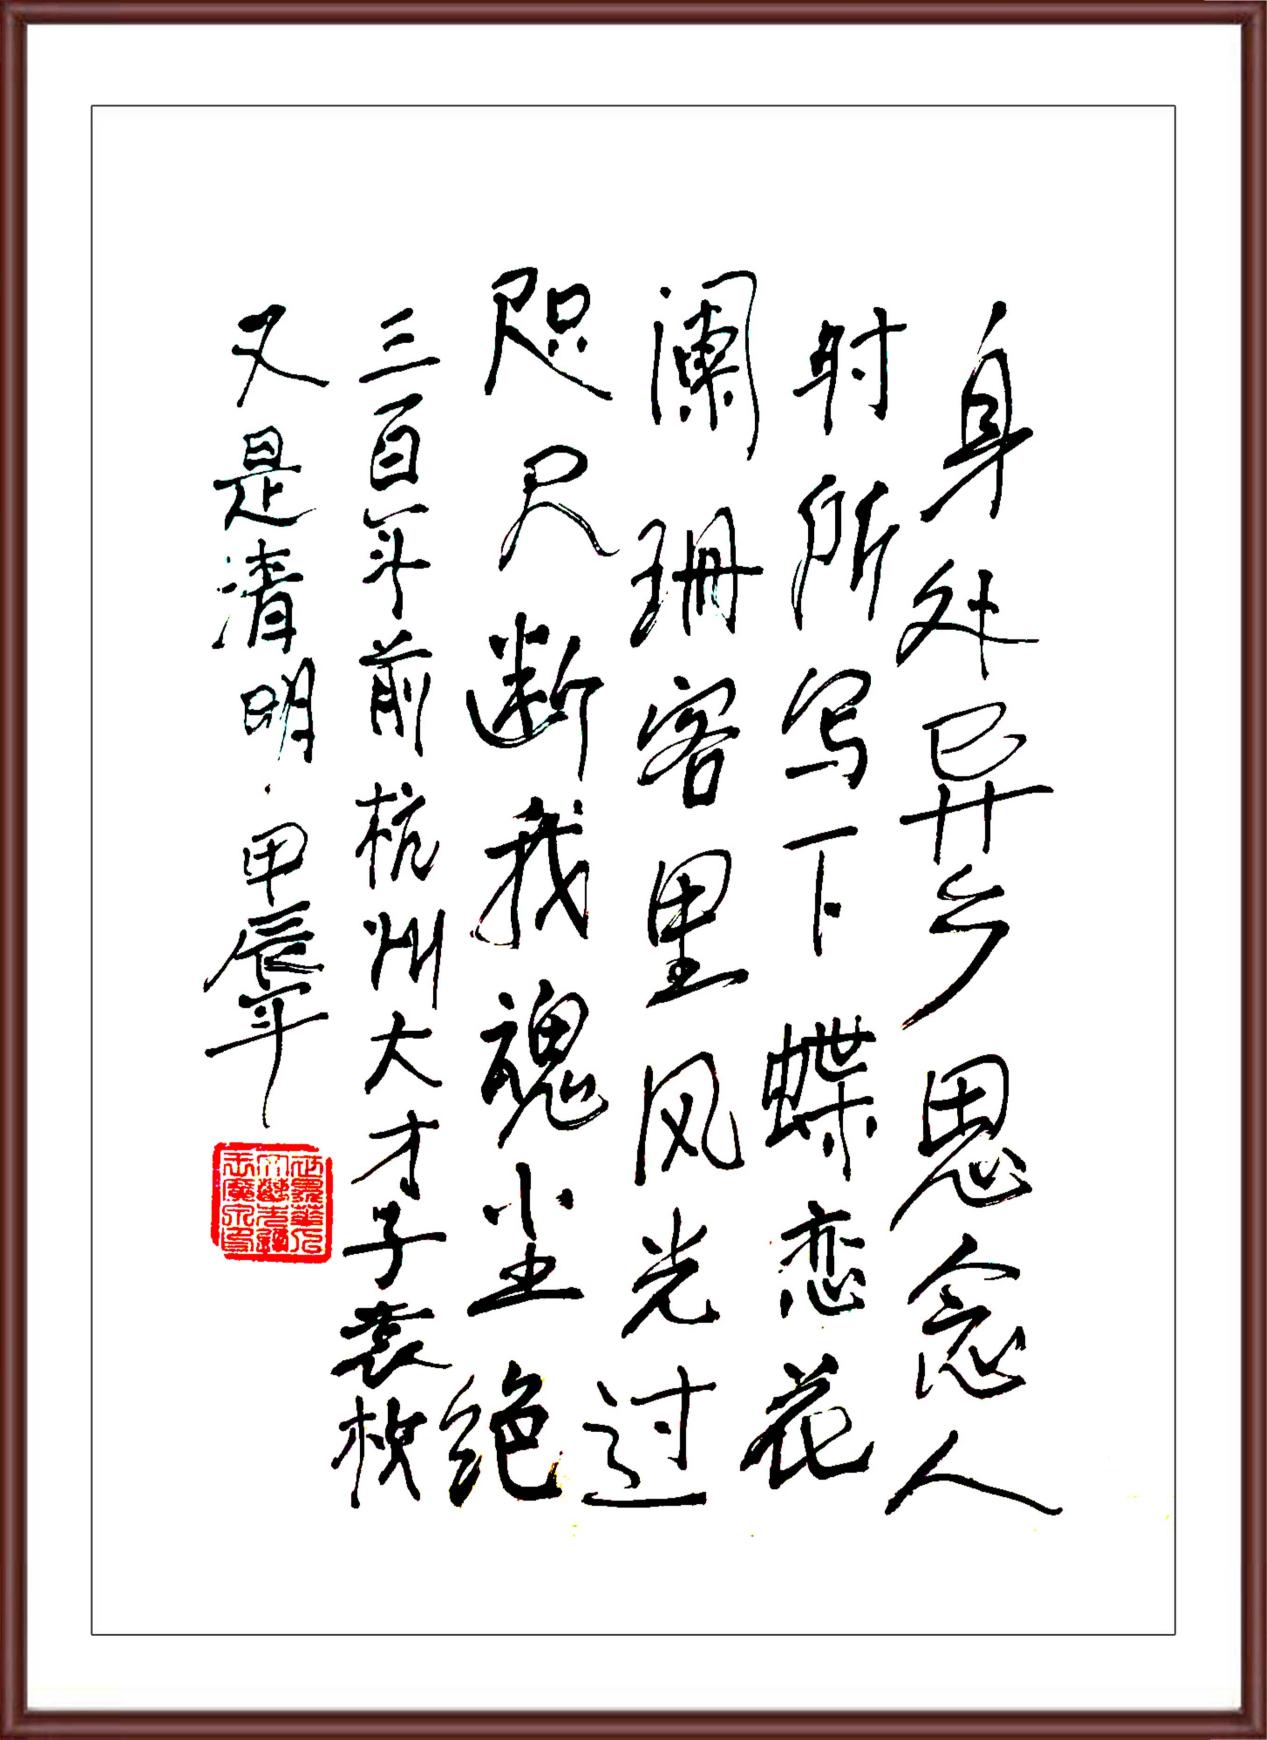 身处异乡思念人
时所写下蝶恋花
阑珊客里风光过
咫尺断我魂尘绝
三百年前杭州大才子袁枚
又是清明.甲辰年